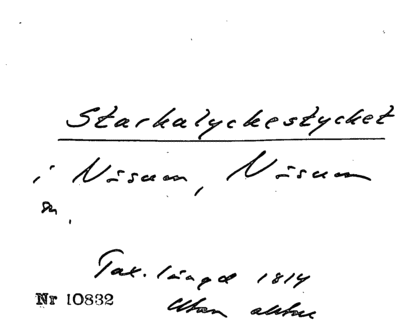 Starkalyckestycket
i Näsum, Näsum
sn.
Tax. längd 1814
Utan akter
Nr 10832